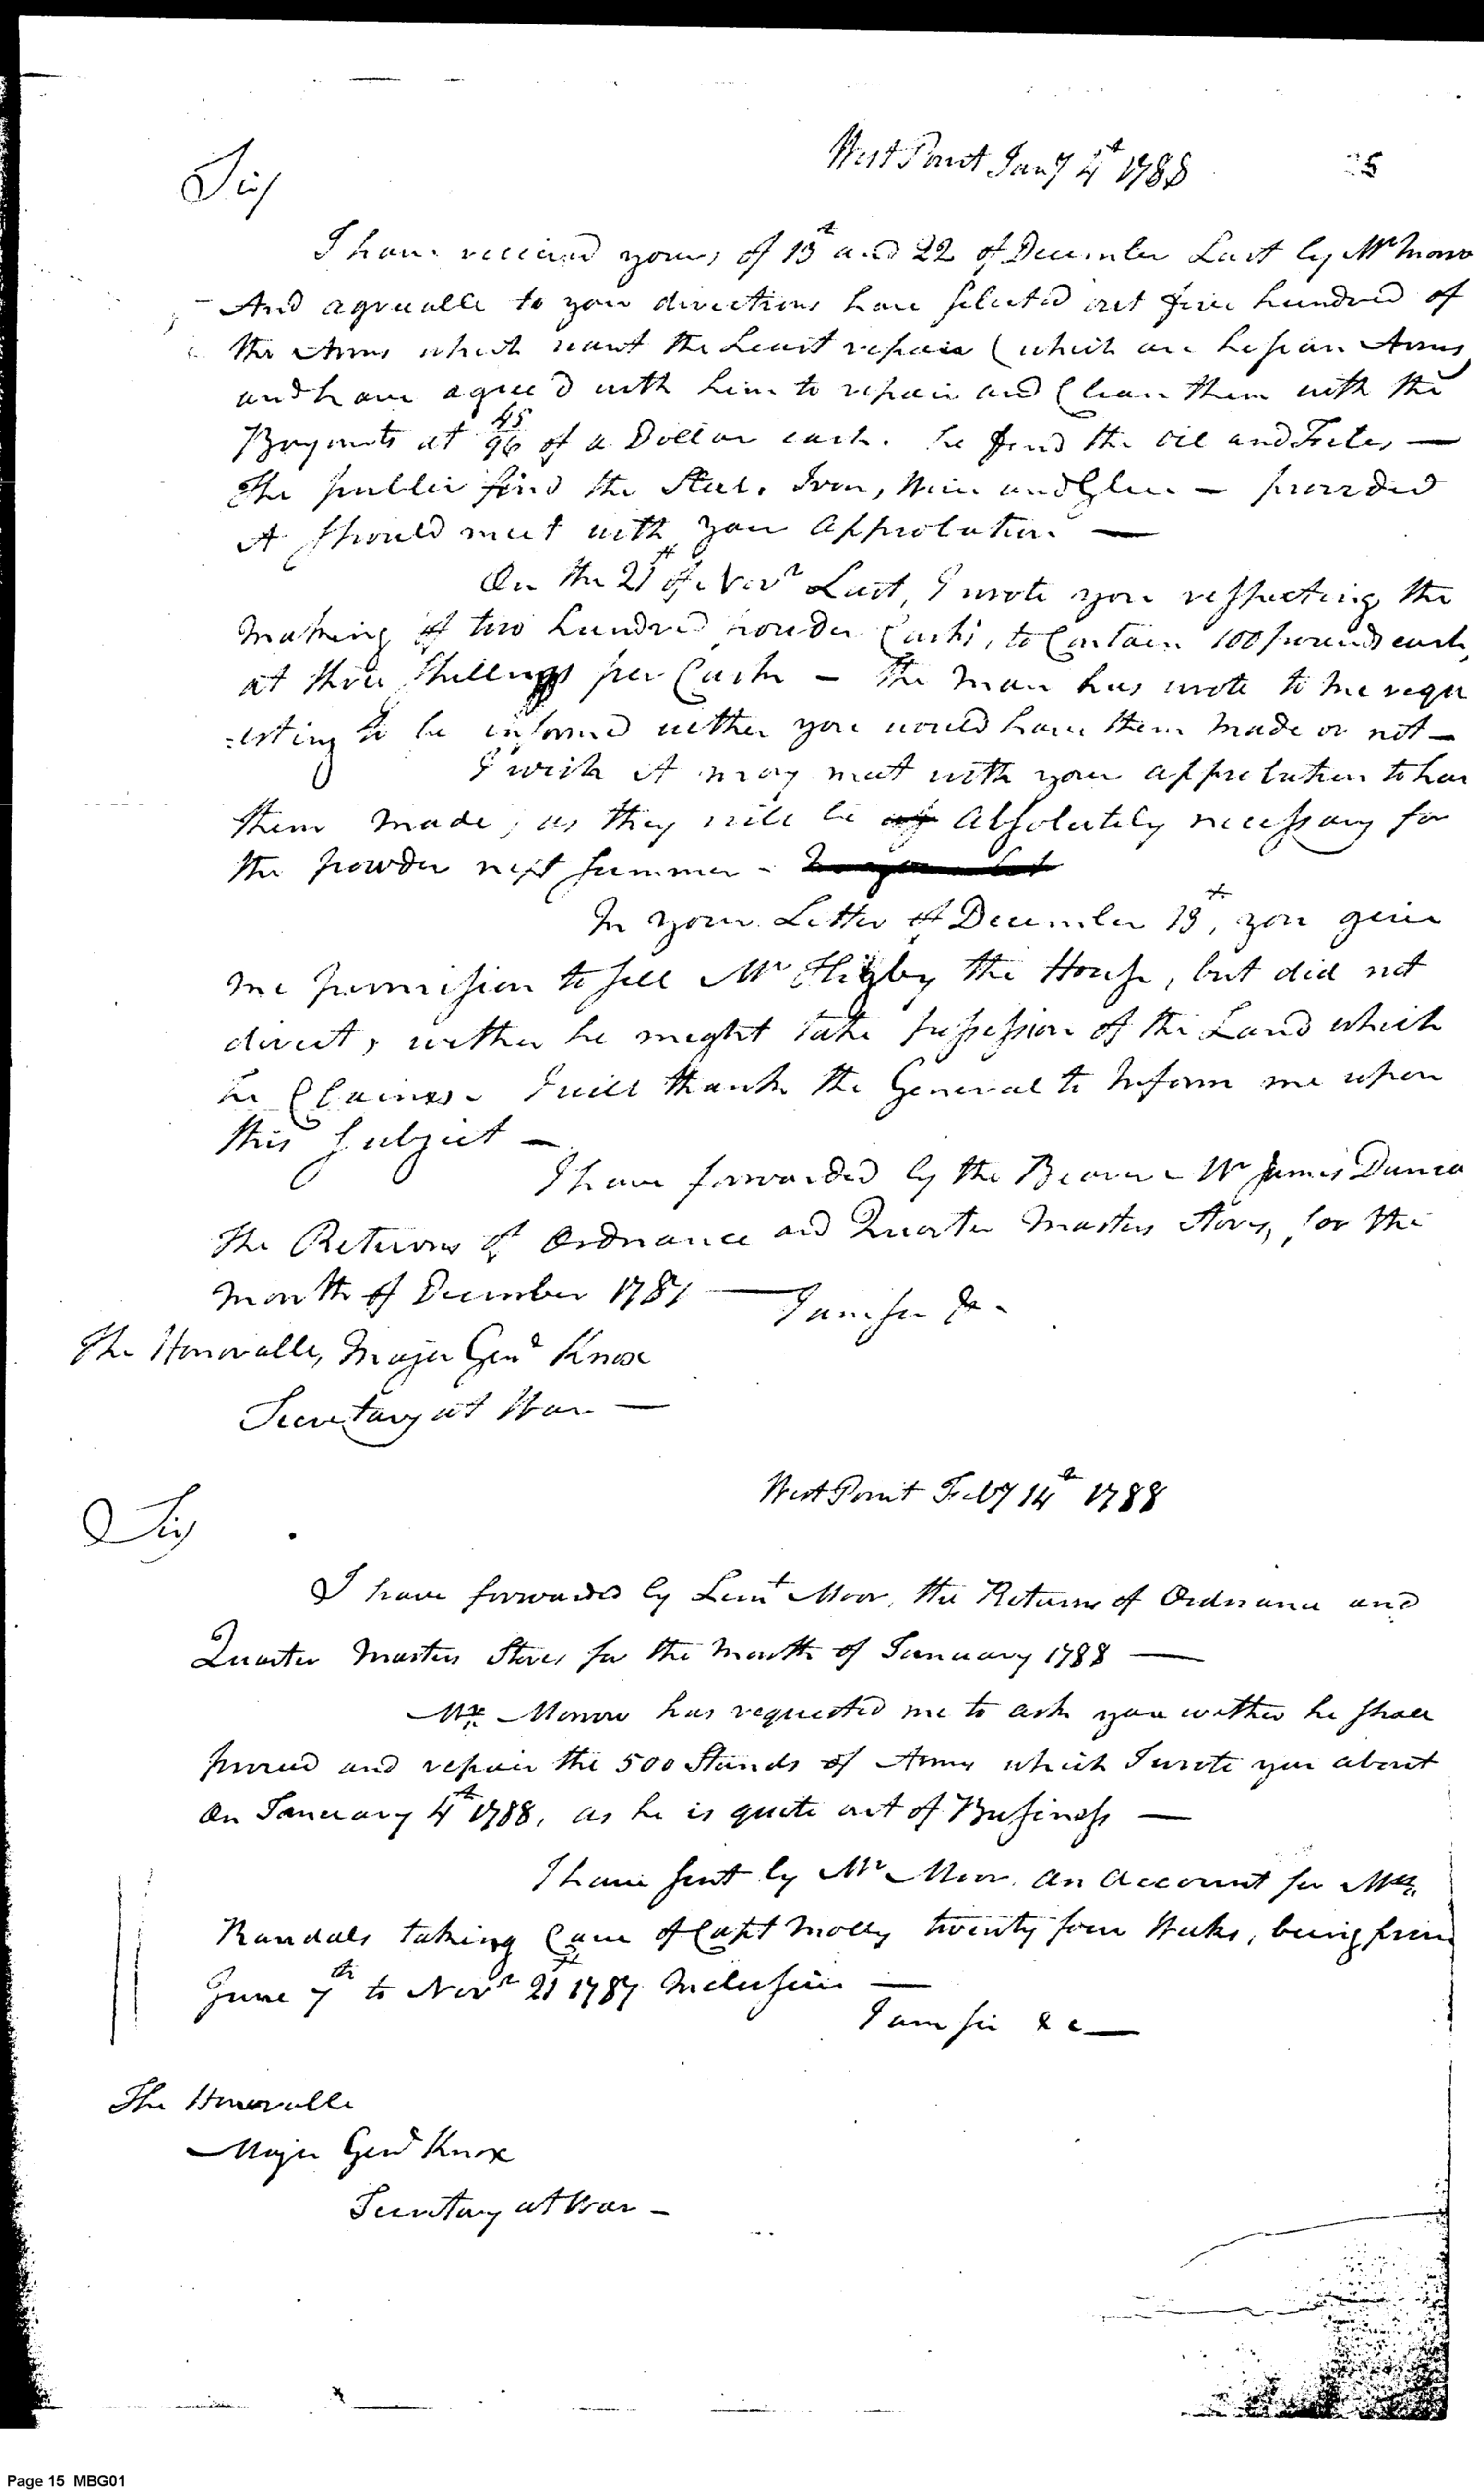 West Point Jany 4th 1788
Sir
I have received yours of 13th and 22 of December Last by Mr Morro
And agreeable to your directions have selected out five hundred of
the Arms which want the Least repair (which are Hessian Arms)
and have agree'd with him to repair and Clean them with the
Bayonets at 45/96 of a Dollar each. he find the oil and Files —
the public find the Steel, Iron, Wire and Glue — provided
it should meet with your Approbation. —
On the 21st of Novr Last, I wrote you respecting the
making of two hundred powder Casks, to Contain 100 pounds each,
at three Shillings per Cask — the man has wrote to me requ
-esting to be informed wether you would have them made or not —
I wish it may meet with your approbation to have
them made, as they will be absolutely necessary for
the powder next summer -
In your Letter of December 13th, you give
me permission to sell Mr Higby the House, but did not
direct, wether he might take possession of the Land which
he Claimes. I will thank the General to Inform me upon
this Subject —
I have forwarded by the Bearer Mr James Dunca
the Returns of Ordnance and Quarter Masters Stores, for the
month of December 1787 — I am sir &c -
The Honorable, Major Genl Knox
Secretary at War —
West Point Feby 14th 1788
Sir
I have forwarded by Leut Moor, the Returns of Ordnance and
Quarter Masters Stores for the Month of January 1788 —
Mr. Morrow has requested me to ask you wether he shall
proceed and repair the 500 Stands of Arms which I wrote you about
On January 4th 1788, as he is quite out of Business —
I have sent by Mr Moor, an Account for Mrs.
Randals taking Care of Capt Molly twenty four Weeks, being from
June 7th to Novr 21st 1787 Inclusive —
I am sir &c —
The Honorable
Major Genl Knox
Secretary at War —
Page 15 MBG01